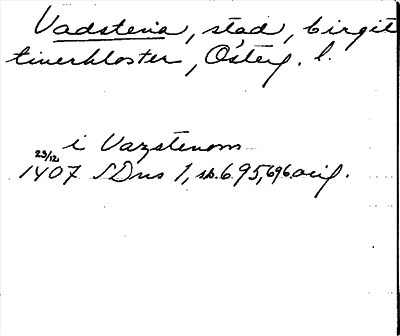 Vadstena, stad, birgit
tinerkloster, Österg. l.
i Vazstenom
23/12
1407 SDns 1, sid. 695, 696 orig.